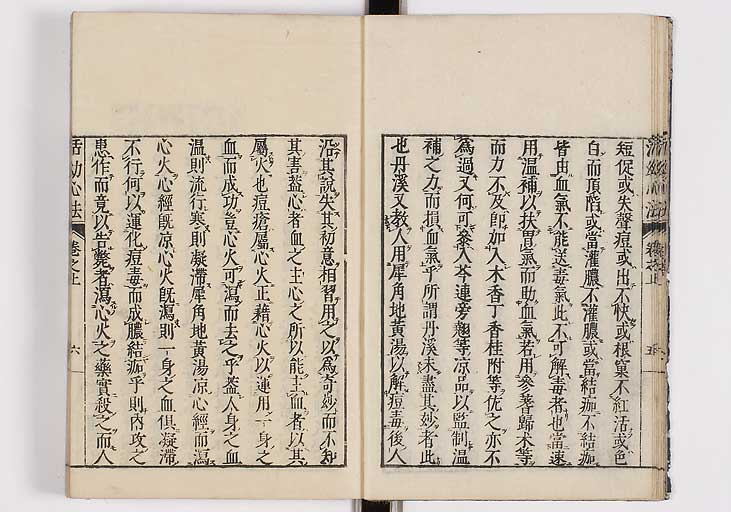 短促或失聲痘或出不快或根窠不紅活或色
白而頂陷或當灌膿不灌膿或當結痂不結痂
皆由血氣不能送毒氣此不可解毒者也當速
用溫補以扶胃氣而助血氣若用參芪歸朮等
而力不及卽如入木香丁香桂附等佐之亦不
為過又何可參入芩連旁翹等凉品以監制溫
補之力而損血氣乎所謂丹溪未盡其妙者此
也丹溪又教人用犀角地黃湯以解痘毒後人
沿其說失其初意相習用之以為奇妙而不知
其害蓋心者血之主心之所以能主血者以其
屬火也痘瘡屬心火正藉心火以運用一身之
血而成功豈心火可瀉而去之乎蓋人身之血
溫則流行寒則凝滯犀角地黃湯凉心經而瀉
心火心經既凉心火既瀉則一身之血俱凝滯
不行何以運化痘毒而成膿結痂乎則內攻之
患作而竟以告斃者瀉心火之藥實殺之而人
活幼心法 卷之上 六